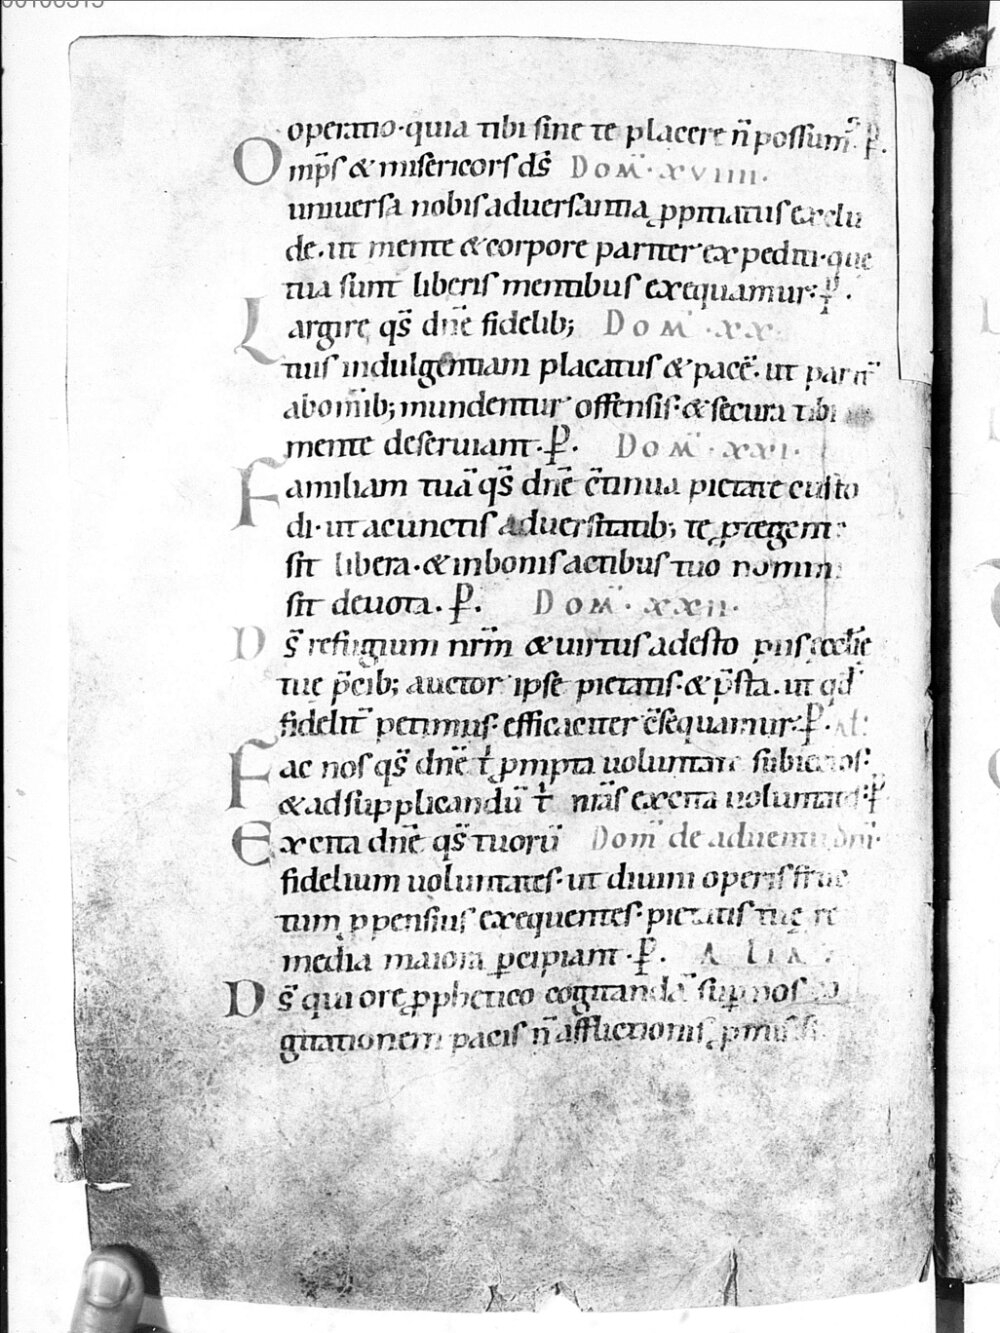 operatio·quia tibi sine te placere n̄ possum᷒·P̱.
Omp̄s & misericors d̄s Dom̄·xviiii.
uniuersa nobis aduersantia ppitiatus exclu
de·ut mente & corpore pariter expediti·que
tua sunt liberis mentibus exequamur:P̱.
Largire q̄s dn̄e fidelib; Dom̄·xx
tuis indulgentiam placatus & pacē·ut parit̄
abomīb; mundentur offensis·& secura tibi
mente deseruiant·P̱. Dom̄·xxi·
Familiam tuā q̄s dn̄e c̄tinua pietate custo
di·ut acunctis aduersitatib; te ptegente
sit libera·& inbonis actibus tuo nomini
sit deuota·P̱. Dom̄·xxii·
Ds̄ refugium nrm̄ & uirtus adesto piis ęcclīe
tuę p̄cib; auctor ipse pietatis·& p̄sta·ut qd̄
fidelit̄ petimus·efficaciter c̄sequamur:P̱·
Fac nos q̄s dn̄e t̄ pmpta uoluntate subiectos:
& ad supplicandū t̄ nrās excita uoluntates:P̱
Excita dn̄e q̄s tuorū Dom̄ de aduentu dn̄i·
fidelium uoluntates·ut diuini operis fruc
tum ppensius exequentes·pietatis tuę re
media maiora pcipiant·P̱. ALIA
Ds̄ qui ore pphetico cogitandā sup nos co
gitationem pacis n̄ afflictionis